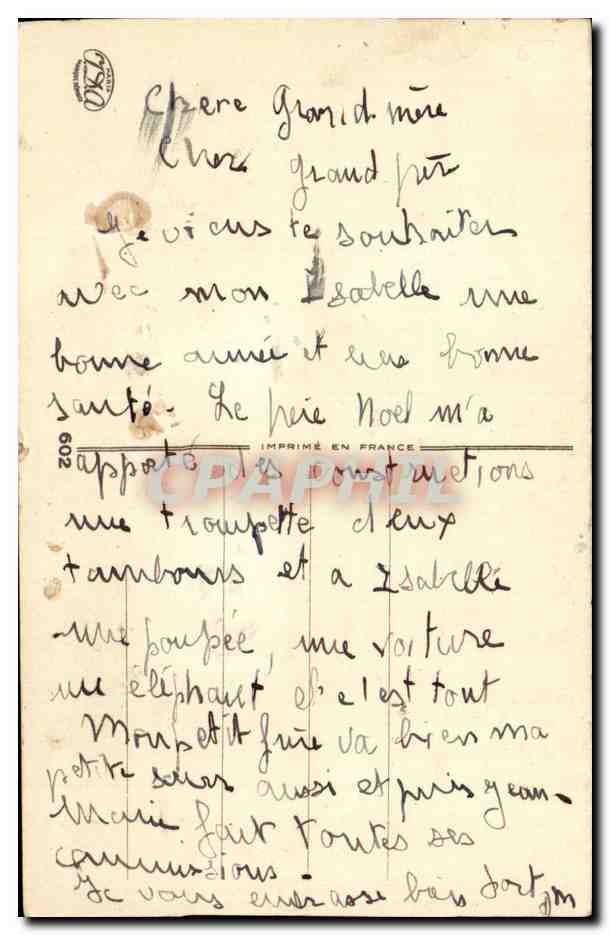 PARIS
Chere Grand mère
Cher grand pèr
Je viens te souhaiter
avec mon Isabelle une
bonne année et une bonne
santé. Le père Noel m'a
602
IMPRIMÉ EN FRANCE
apporté des constructions
CPAPHIL
une trompette deux
tambours et a Isabelle
une poupée, une voiture
un éléphant et c'est tout
Mon petit frère va bien ma
petite seur aussi et puis Jean-
Marie fait toutes ses
commissions.
Je vous embrasse bien fort